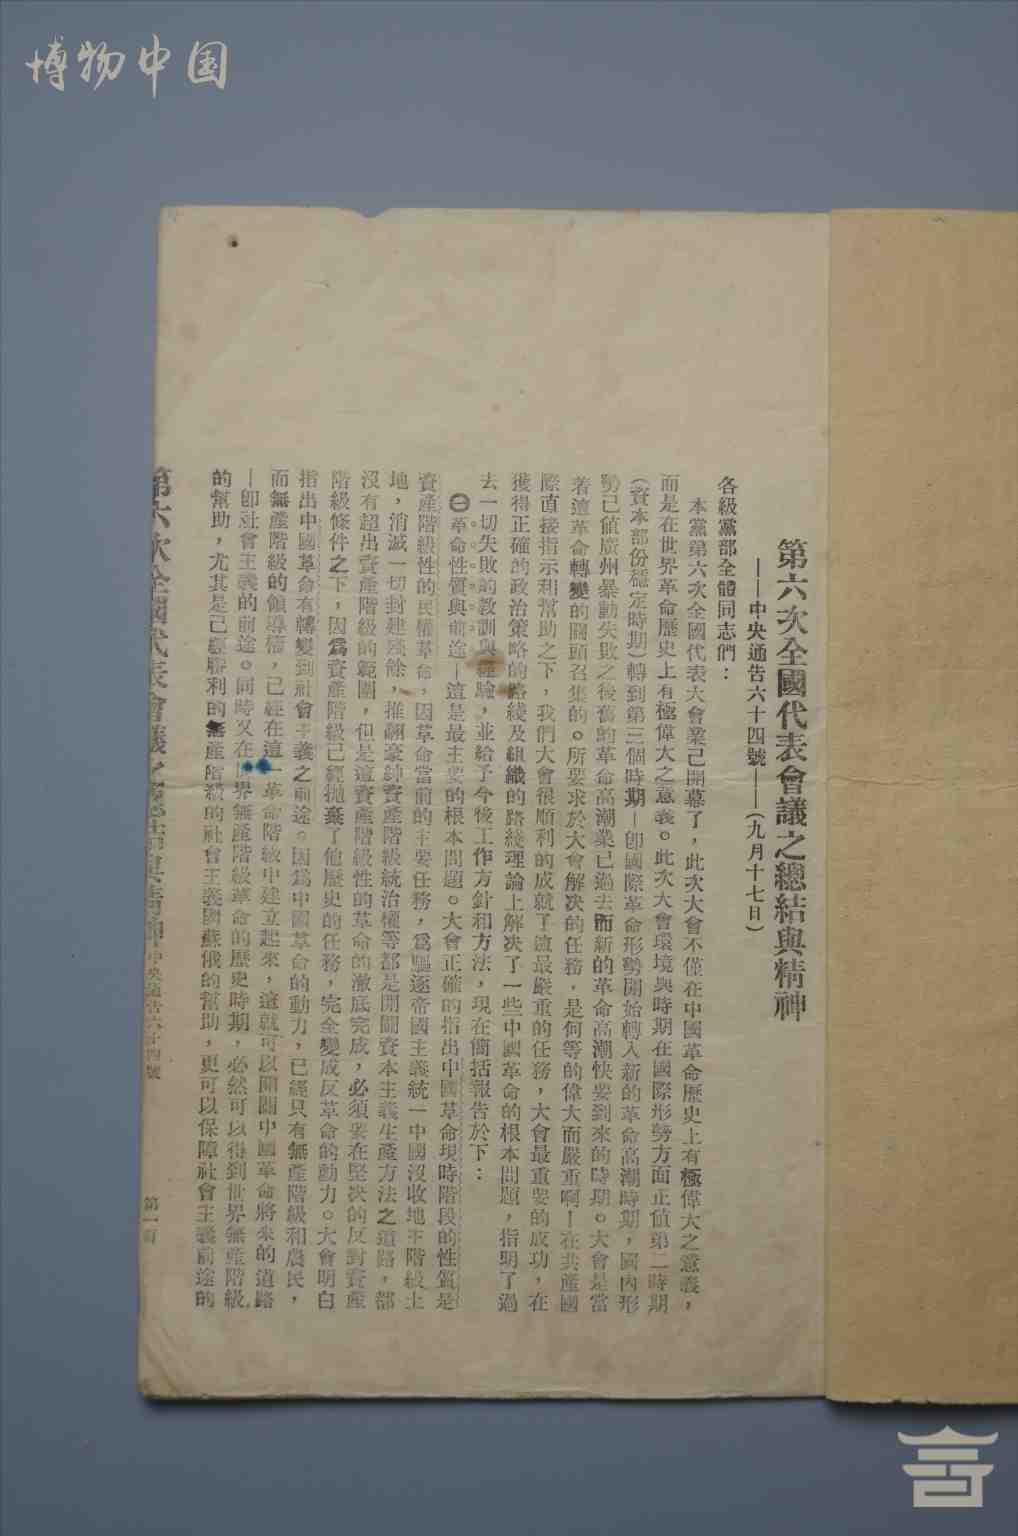 博物中国
第六次全國代表會議之總結與精神
——中央通告六十四號——(九月十七日)
各級黨部全體同志們：
本黨第六次全國代表大會業已開幕了，此次大會不僅在中國革命歷史上有極偉大之意義，
而是在世界革命歷史上有極偉大之意義。此次大會環境與時期在國際形勢方面正值第二時期
(資本部份穩定時期)轉到第三個時期—卽國際革命形勢開始轉入新的革命高潮時期，國內形
勢已值廣州暴動失敗之後舊的革命高潮業已過去而新的革命高潮快要到來的時期。大會是當
着這革命轉變的關頭召集的。所要求於大會解决的任務，是何等的偉大而嚴重啊！在共產國
際直接指示和幫助之下，我們大會很順利的成就了這最嚴重的任務，大會最重要的成功，在
獲得正確的政治策略的路綫及組織的路綫理論上解决了一些中國革命的根本問題，指明了過
去一切失敗的教訓與經驗，並給予今後工作方針和方法，現在簡括報告於下：
㊀革命性質與前途—這是最主要的根本問題。大會正確的指出中國革命現時階段的性質是
資產階級性的民權革命，因革命當前的主要任務，爲驅逐帝國主義統一中國沒收地主階級土
地，消滅一切封建殘餘，推翻豪紳資產階級統治權等都是開闢資本主義生產方法之道路，都
沒有超出資產階級的範圍，但是這資產階級性的革命的澈底完成，必須要在堅决的反對資產
階級條件之下，因爲資產階級已經拋棄了他歷史的任務，完全變成反革命的動力。大會明白
指出中國革命有轉變到社會主義之前途。因爲中國革命的動力，已經只有無產階級和農民，
而無產階級的領導權，已經在這一革命階級中建立起來，這就可以開闢中國革命將來的道路
—卽社會主義的前途。同時又在世界無產階級革命的歷史時期，必然可以得到世界無產階級
的幫助，尤其是已經勝利的無產階級的社會主義國蘇俄的幫助，更可以保障社會主義前途的
第六次全國代表會議之總結與精神 中央通告六十四號
第一頁